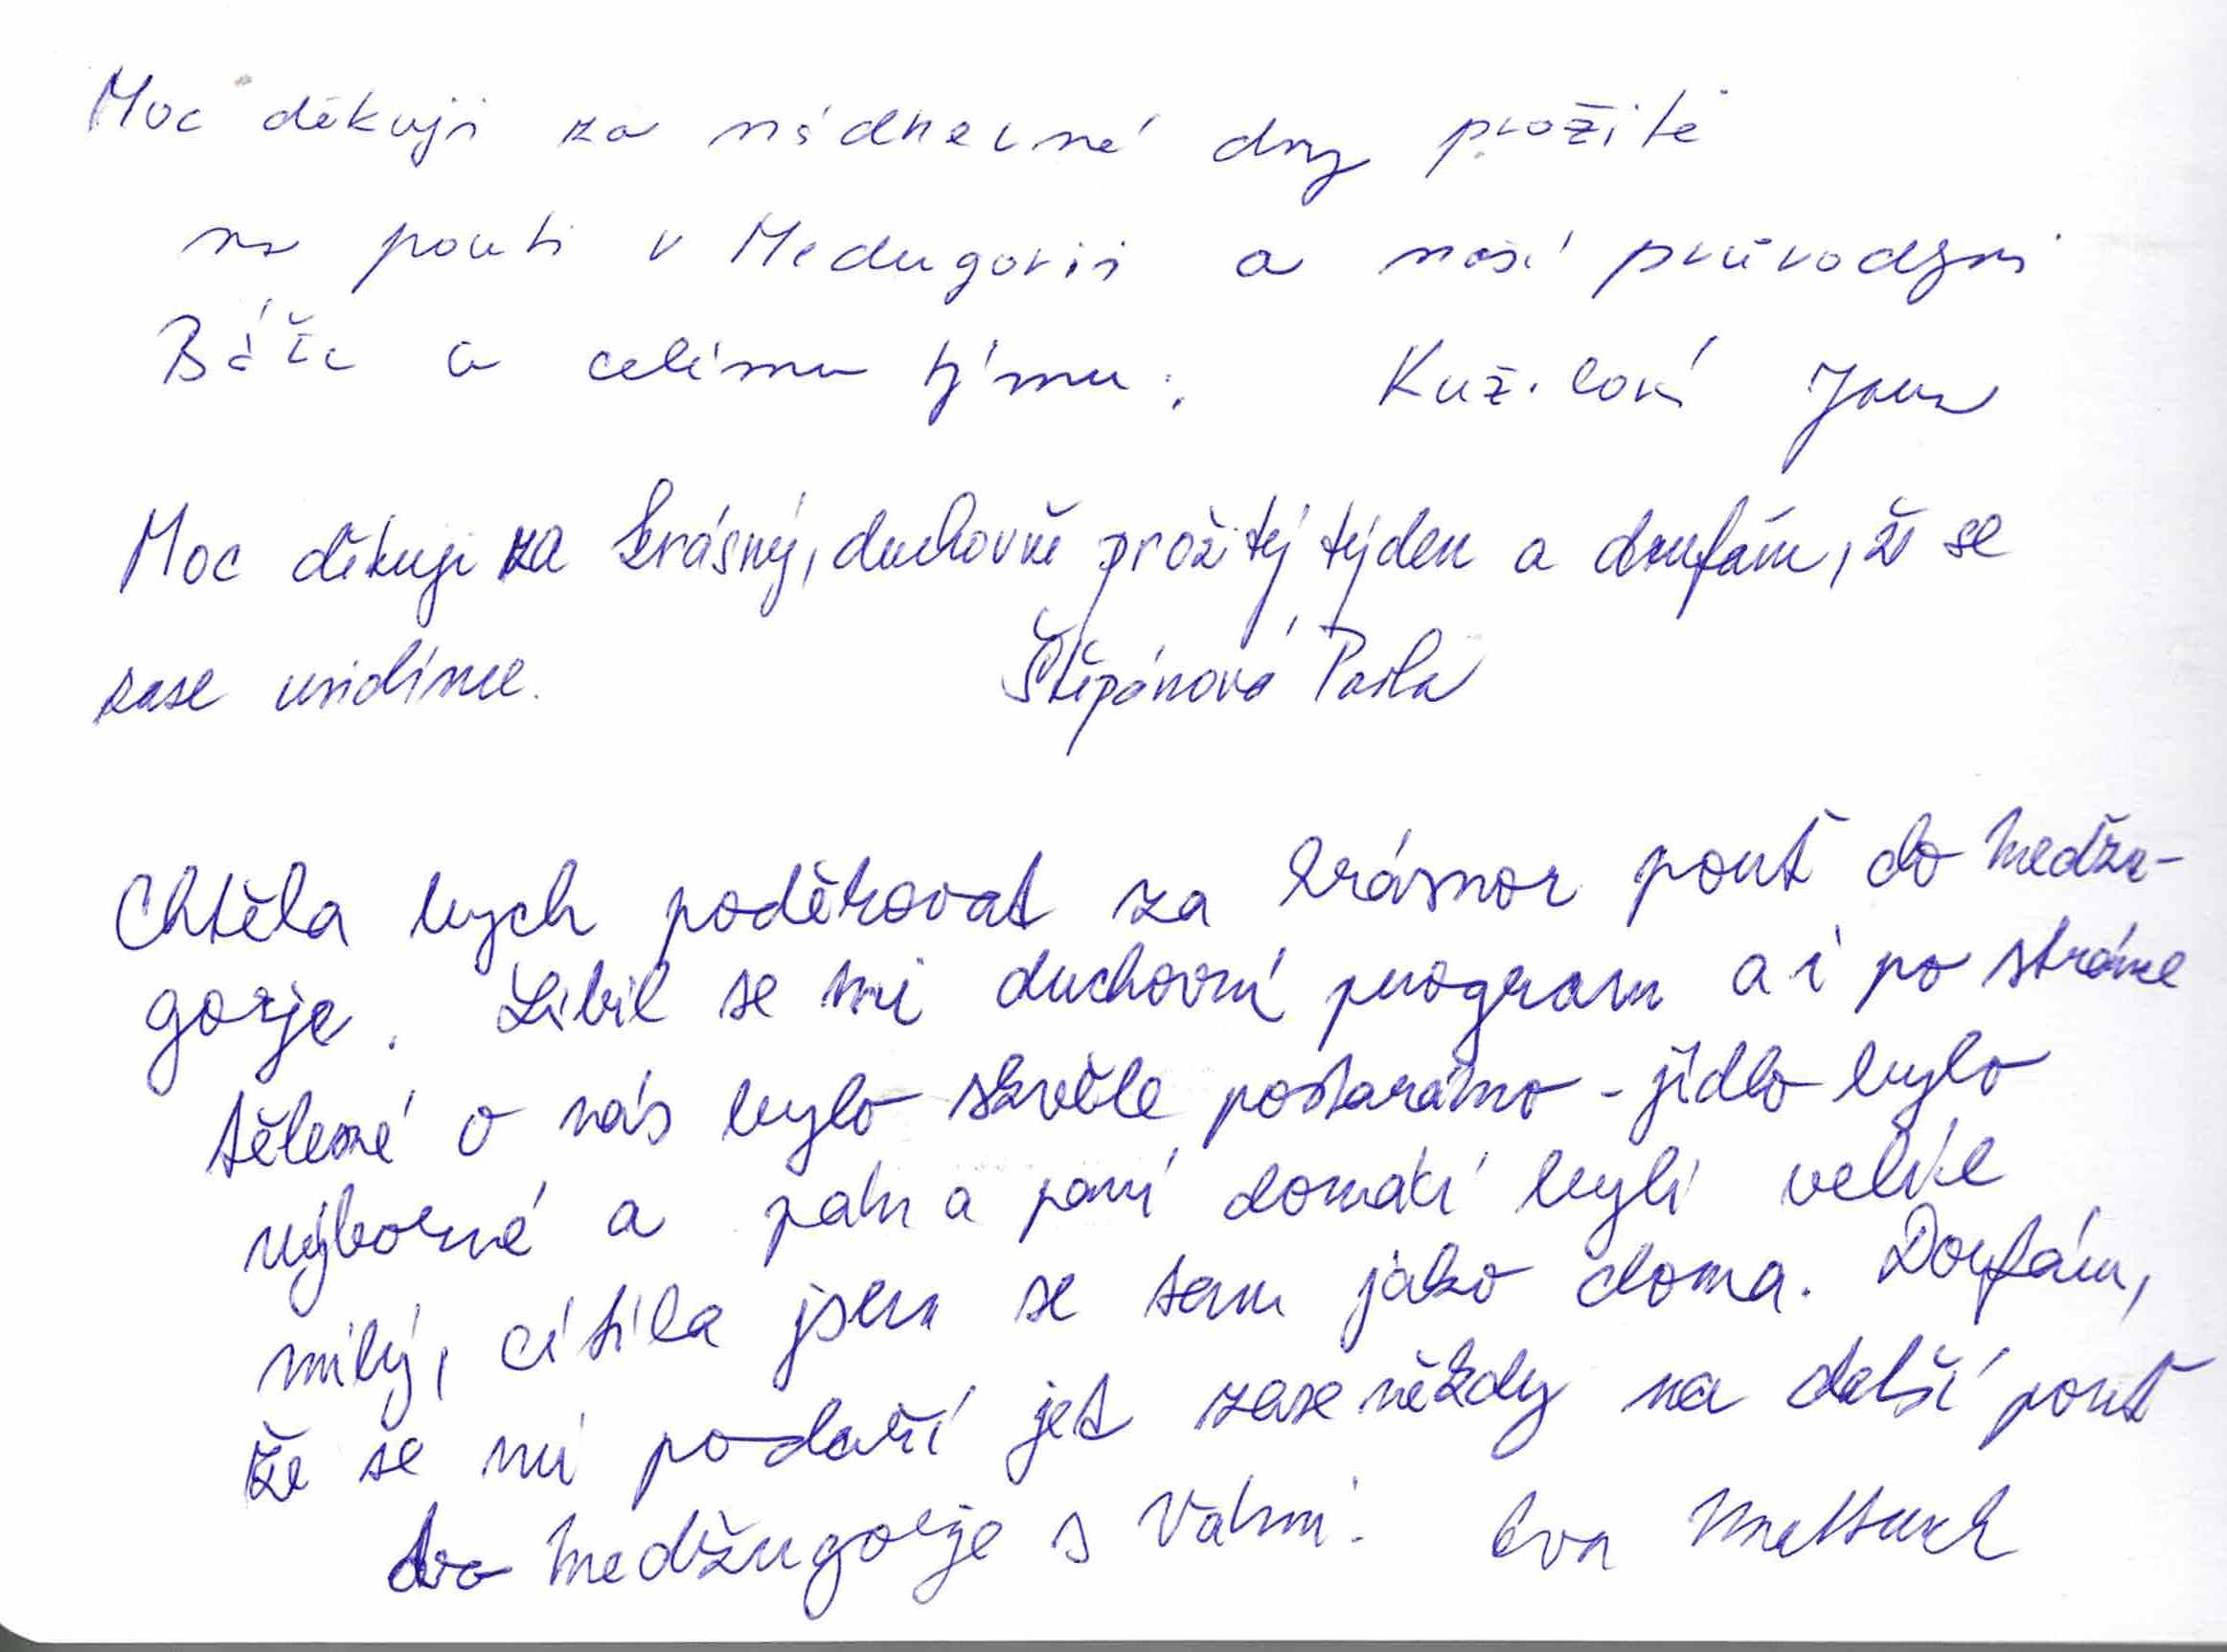 Moc děkuji za nádherné dny prožité
na pouti v Medugorii a naší průvodkyni
Báře a celému týmu. Kužílková Jana
Moc děkuji za krásný, duchovně prožitý týden a doufám, že se
zase uvidíme. Štěpánová Pavla
Chtěla bych poděkovat za krásnou pouť do Medžu-
gorje. Líbil se mi duchovní program a i po stránce
tělesné o nás bylo skvěle postaráno - jídlo bylo
výborné a pán a paní domácí byli velice
milý, cítila jsem se tam jako doma. Doufám,
že se mi podaří jet zase někdy na další pouť
do Medžugorje s Vámi. Eva